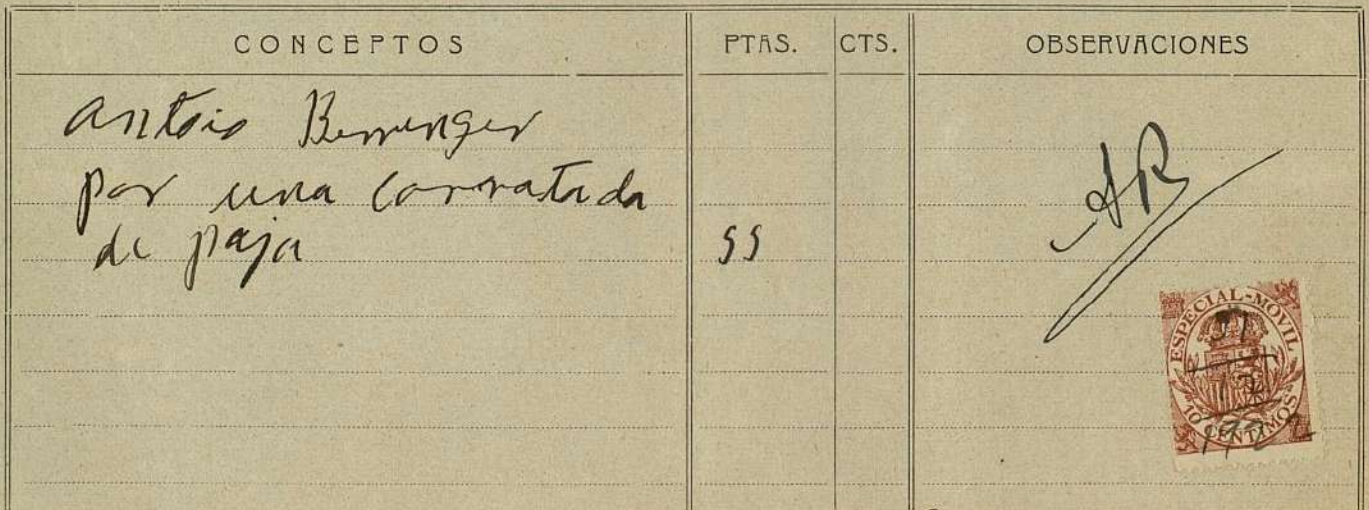 CONCEPTOS PTAS. CTS. OBSERVACIONES
Antoio Berrenger
por una carratada
de paja 55
AB
ESPECIAL-MOVIL
10 CENTIMOS
1922